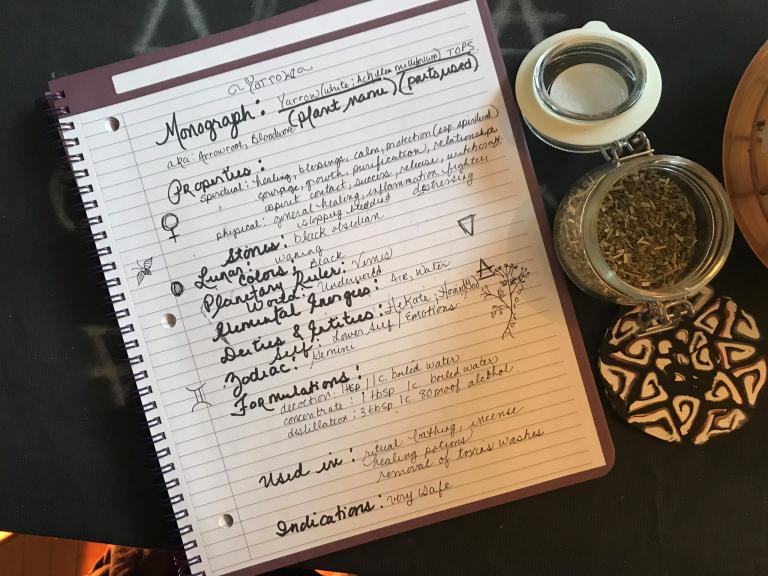 a Yarrow a
Monograph: Yarrow (white: Achillea millefolium) TOPS
(plant name) (parts used)
aka: Arrowroot, Bloodwort
Properties:
spiritual: healing, blessings, calm, protection (esp. spiritual)
courage, growth, purification, relationships
spirit contact, success, release, witchcraft
physical: general healing, inflammation fighter,
stopping bleeding destressing
Stones: black obsidian
Lunar: waning
Colors: black
Planetary Ruler: Venus
World: Underworld
Elemental Energies: Air, Water
Deities & Entities: Hekate, Honeybee
Self: Lower Self / Emotions
Zodiac: Gemini
Formulations:
decoction: 1 tsp / 1 c. boiled water
concentrate: 1 tbsp 1 c. boiled water
distillation: 3 tbsp 1 c. 80 proof alcohol
Used in: ritual bathing, incense
healing potions
removal of toxins washes
Indications: very safe